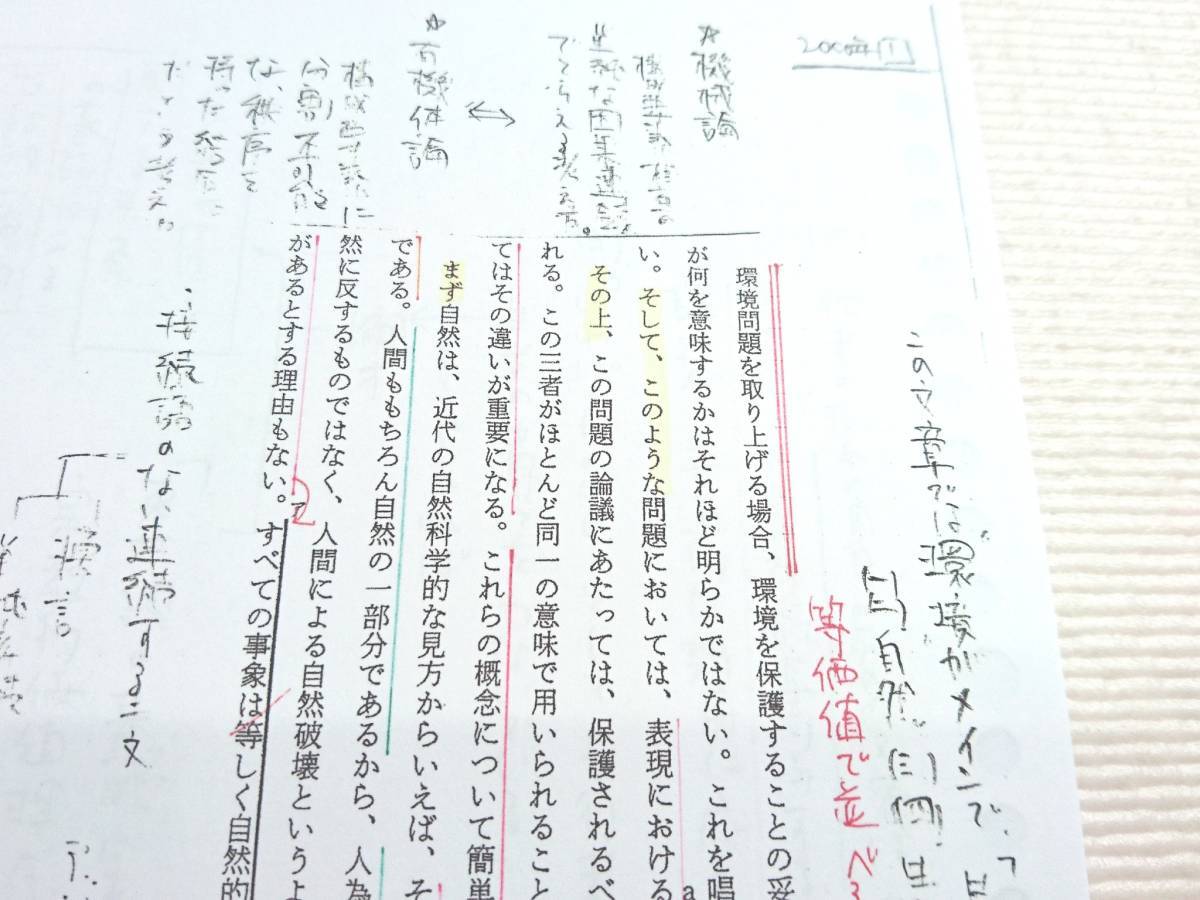 2000年 1
☆機械論
構成要素
単純な因果連鎖
でとらえる考え方。
⇔
☆有機体論
構成要素に
分割不可能
な、秩序を
持った
だという考え方
この文章では"環境"がメインで、
自然
等価値で並べる
環境問題を取り上げる場合、環境を保護することの妥
が何を意味するかはそれほど明らかではない。これを唱
い。そして、このような問題においては、表現における
a
その上、この問題の論議にあたっては、保護されるべ
れる。この三者がほとんど同一の意味で用いられること
てはその違いが重要になる。これらの概念について簡単
まず自然は、近代の自然科学的な見方からいえば、そ
である。人間ももちろん自然の一部分であるから、人為
然に反するものではなく、人間による自然破壊というよ
があるとする理由もない。アすべての事象は等しく自然的
・接続語のない連続する二文
換言